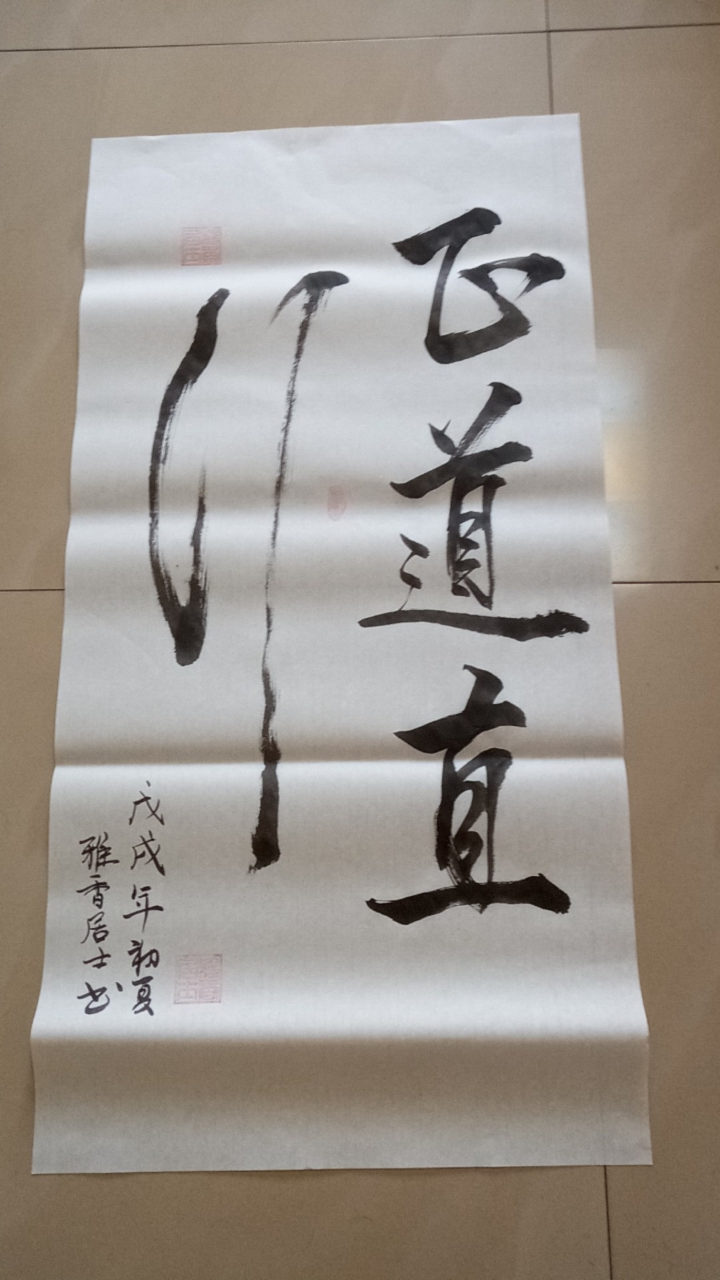 正道直
行
戊戌年初夏
雅香居士书